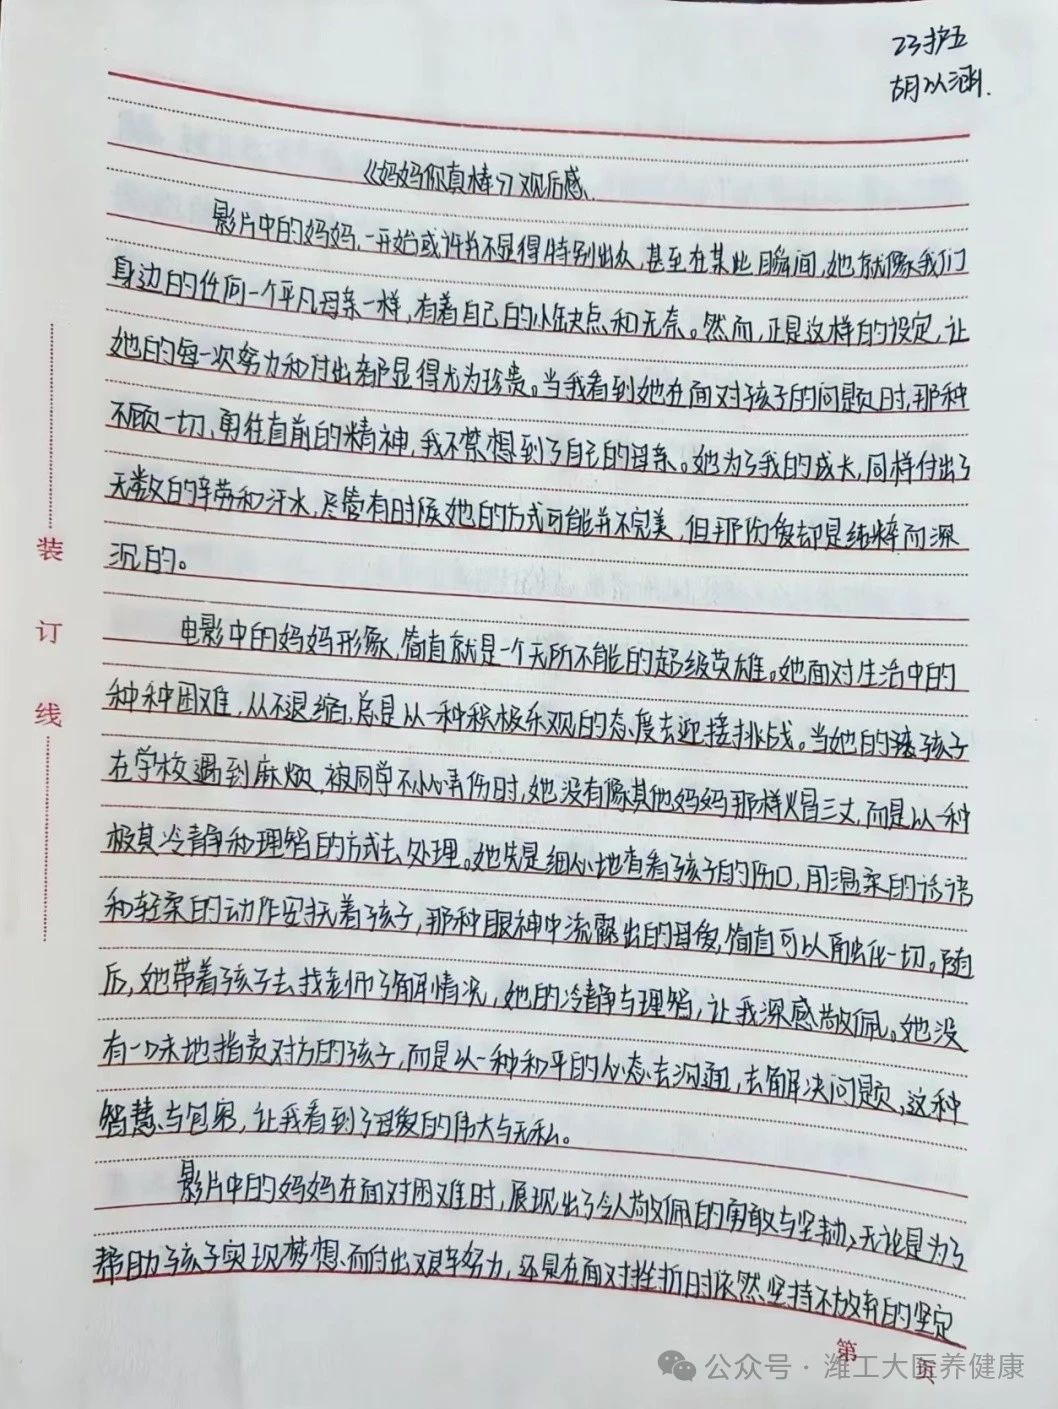 23护五
胡以涵.
《妈妈你真棒》观后感.
影片中的妈妈,一开始或许并不显得特别出众,甚至在某些瞬间,她就像我们
身边的任何一个平凡母亲一样,有着自己的小缺点和无奈。然而,正是这样的设定,让
她的每一次努力和付出都显得尤为珍贵。当我看到她在面对孩子的问题时,那种
不顾一切、勇往直前的精神,我不禁想到了自己的母亲。她为了我的成长,同样付出了
无数的辛劳和汗水,尽管有时候她的方式可能并不完美,但那份爱却是纯粹而深
沉的。
电影中的妈妈形象,简直就是一个无所不能的超级英雄。她面对生活中的
种种困难,从不退缩,总是以一种积极乐观的态度去迎接挑战。当她的孩子
在学校遇到麻烦,被同学不小心弄伤时,她没有像其他妈妈那样火冒三丈,而是以一种
极其冷静和理智的方式去处理。她先是细心地查看孩子的伤口,用温柔的话语
和轻柔的动作安抚着孩子,那种眼神中流露出的母爱,简直可以融化一切。随
后,她带着孩子去找老师了解情况,她的冷静与理智,让我深感敬佩。她没
有一味地指责对方的孩子,而是以一种和平的心态去沟通,去解决问题,这种
智慧与包容,让我看到了母爱的伟大与无私。
影片中的妈妈在面对困难时,展现出了令人敬佩的勇敢与坚韧,无论是为了
帮助孩子实现梦想而付出艰辛努力,还是在面对挫折时依然坚持不放弃的坚定
装
订
线
第 页
公众号·潍工大医养健康